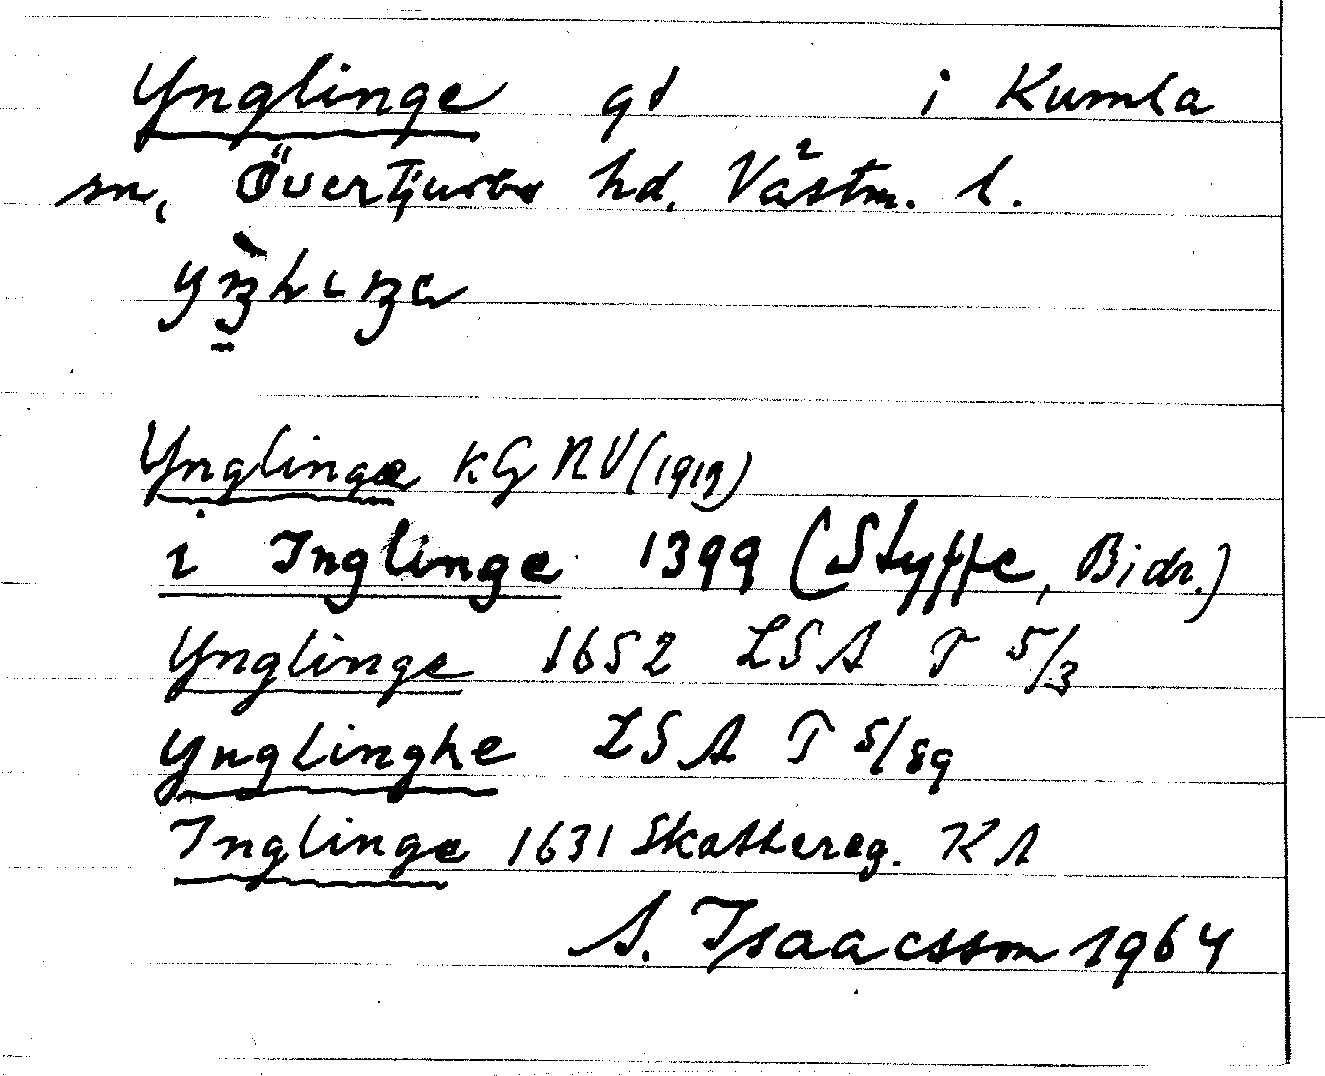 Ynglinge gd i Kumla
sn, Övertjurbo hd. Västm. l.
Ynglinge KG RV (1913)
i Inglinge 1399 (Styffe, Bidr.)
Ynglinge 1652 LSA T 5/3
Ynglinghe LSA T 5/89
Inglinge 1631 Skattereg. KA
S. Isaacsson 1964